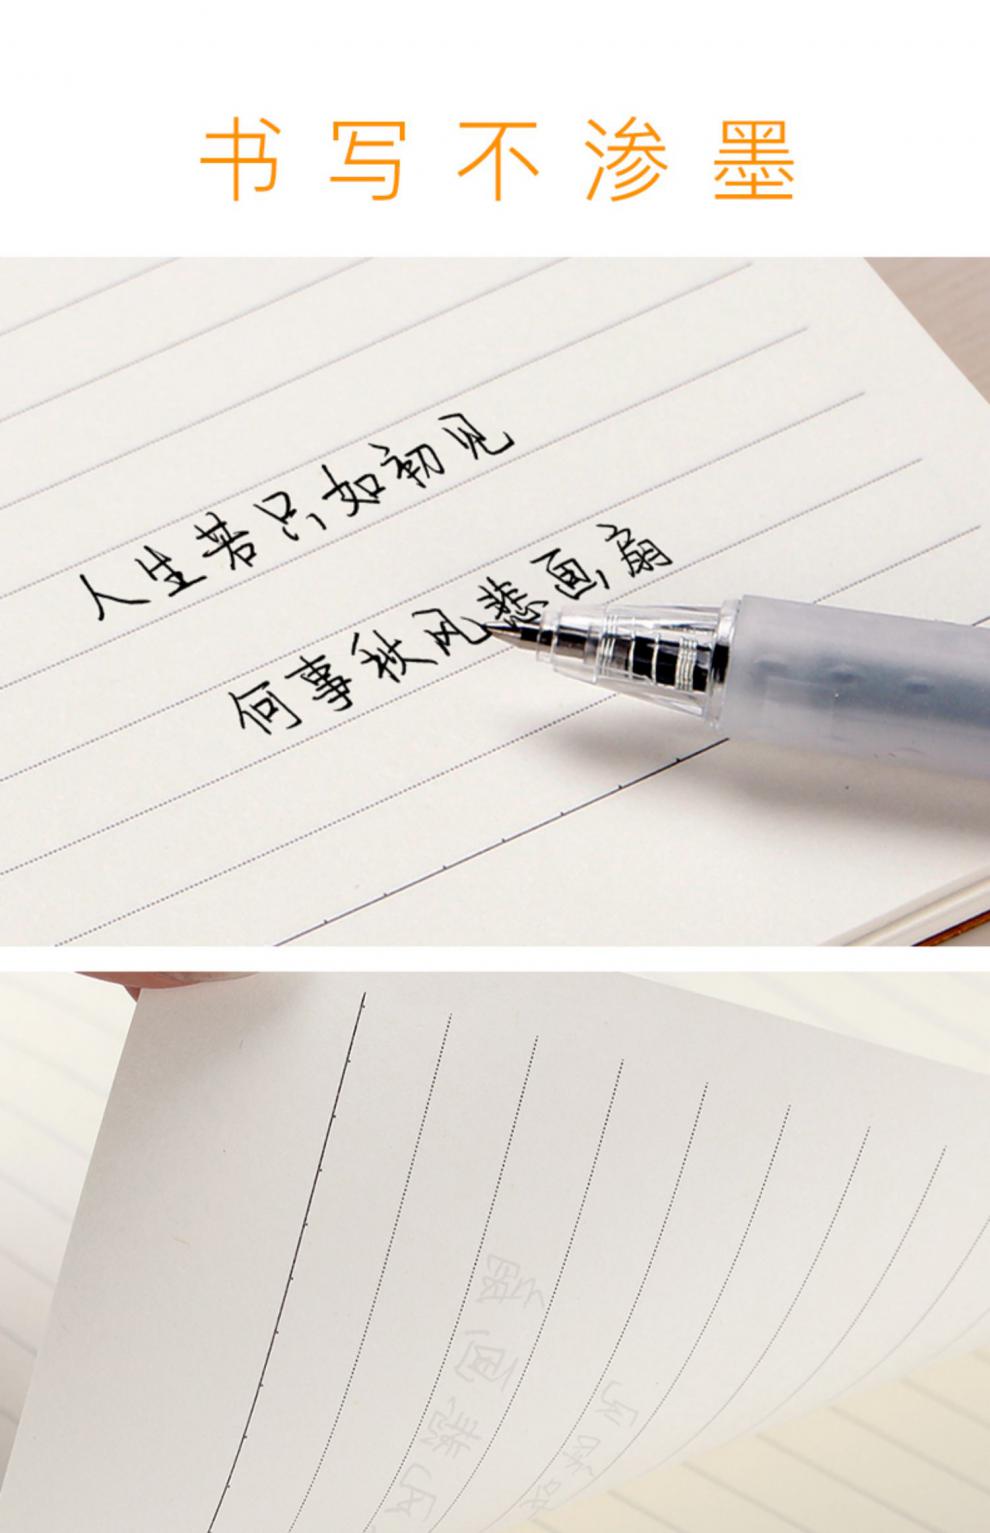 书写不渗墨
人生若只如初见
何事秋风悲画扇